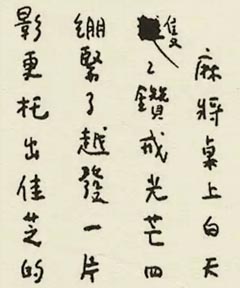 麻將桌上白天
隻〻鑽戒光芒四
綳緊了越發一片
影更托出佳芝的